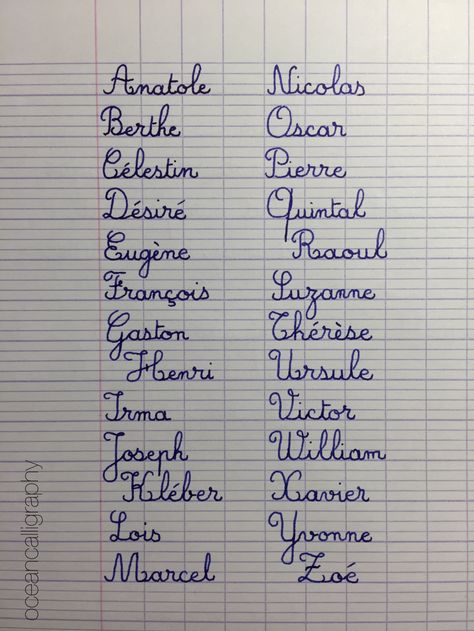 Anatole
Berthe
Célestin
Désiré
Eugène
François
Gaston
Henri
Irma
Joseph
Kléber
Lois
Marcel
Nicolas
Oscar
Pierre
Quintal
Raoul
Suzanne
Thérèse
Ursule
Victor
William
Xavier
Yvonne
Zoé
oceancalligraphy